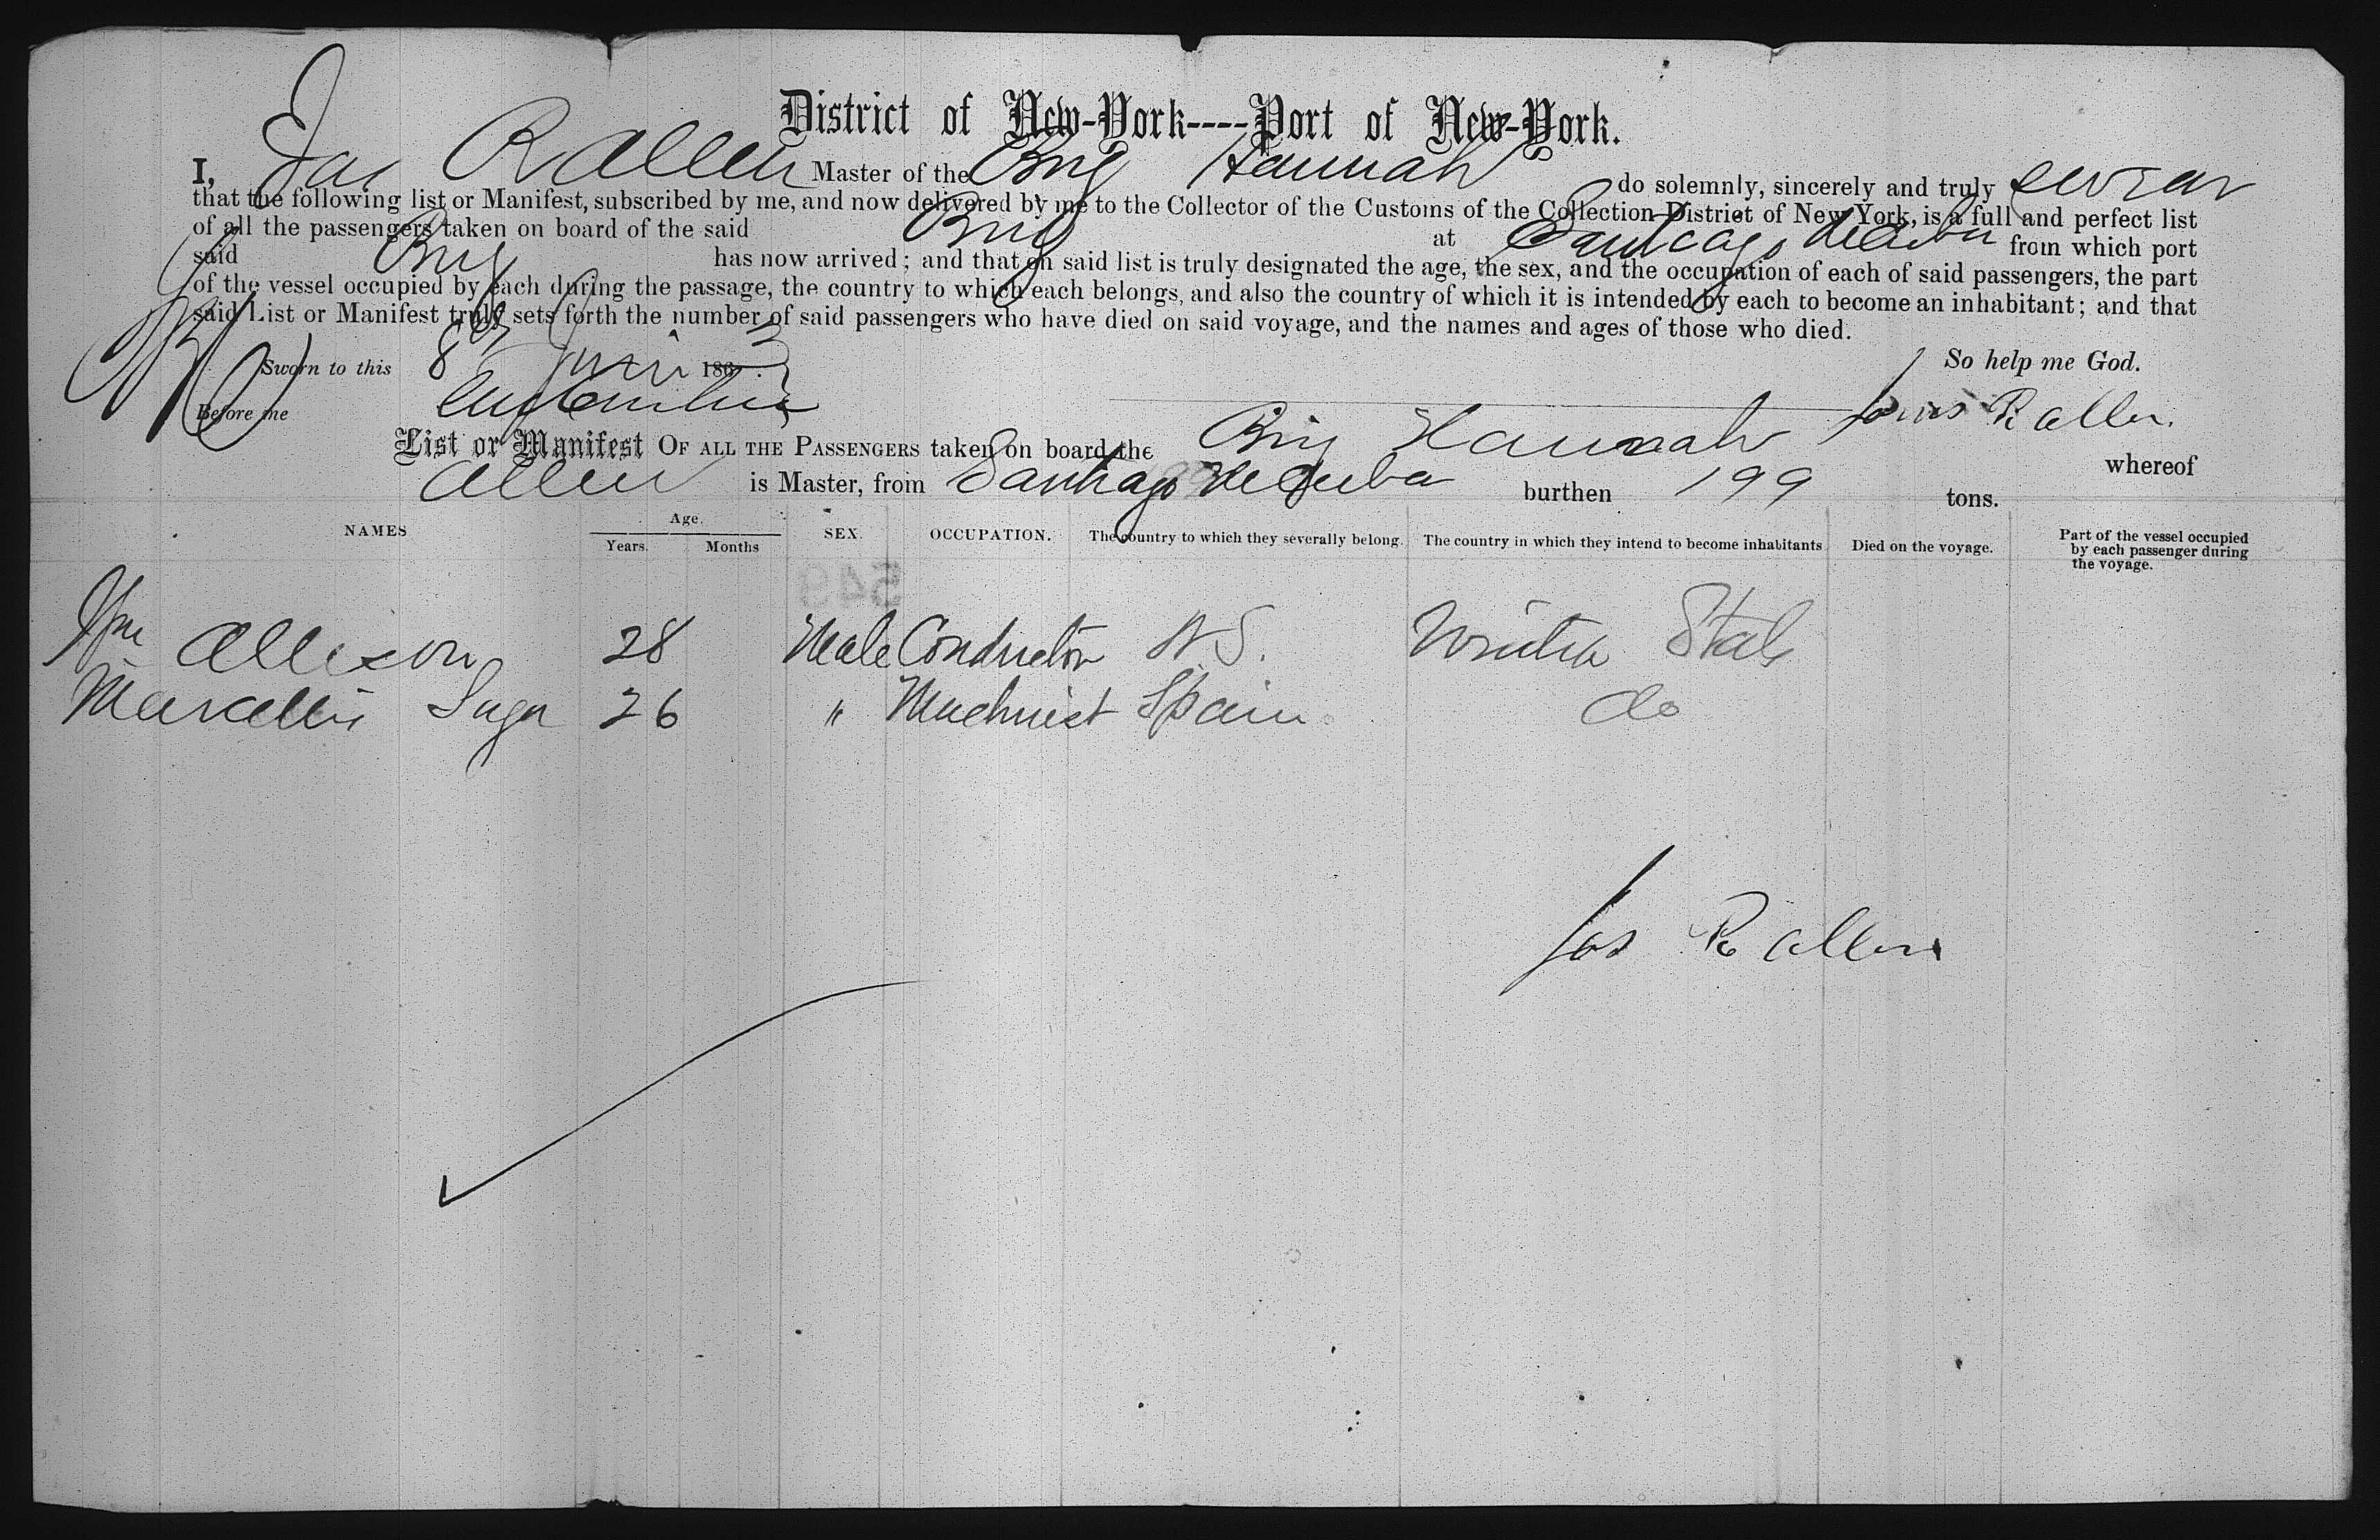 District of New-York----Port of New-York.
I, Jas R Allen Master of the Brig Hannah do solemnly, sincerely and truly swear
that the following list or Manifest, subscribed by me, and now delivered by me to the Collector of the Customs of the Collection District of New York, is a full and perfect list
of all the passengers taken on board of the said Brig at Santiago de Cuba from which port
said Brig has now arrived; and that on said list is truly designated the age, the sex, and the occupation of each of said passengers, the part
of the vessel occupied by each during the passage, the country to which each belongs, and also the country of which it is intended by each to become an inhabitant; and that
said List or Manifest truly sets forth the number of said passengers who have died on said voyage, and the names and ages of those who died.
Sworn to this 8 1863 So help me God.
Before me Jas R Allen.
List or Manifest OF ALL THE PASSENGERS taken on board the Brig Hannah whereof
Allen is Master, from Santiago de Cuba burthen 199 tons.
NAMES Age. Years. Months SEX. OCCUPATION. The country to which they severally belong. The country in which they intend to become inhabitants Died on the voyage. Part of the vessel occupied by each passenger during the voyage.
549
Wm Allison 28 Male Conductor N S. United States
Marcellis 26 " Machinist Spain do
Jas R Allen